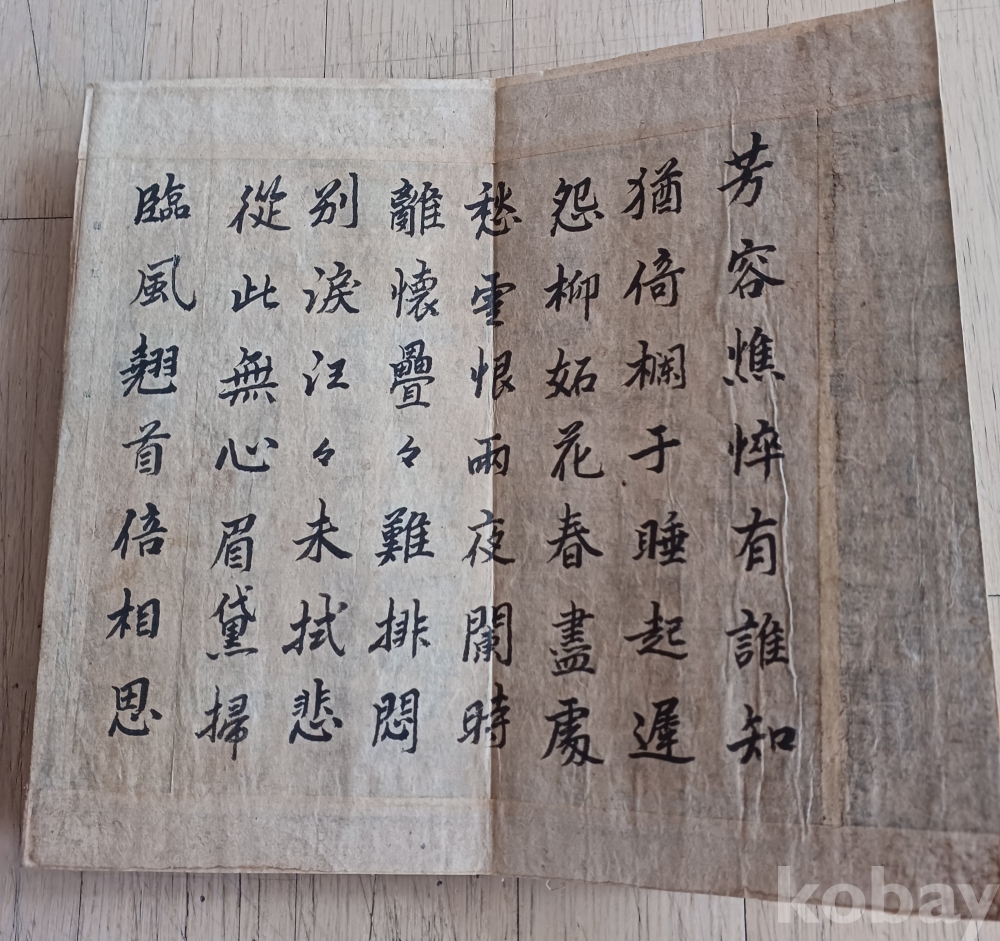 芳容憔悴有誰知
猶倚欄于睡起遲
怨柳妬花春盡處
愁雲恨雨夜闌時
離懷疊々難排悶
別淚江々未拭悲
從此無心眉黛掃
臨風翹首倍相思
kobay